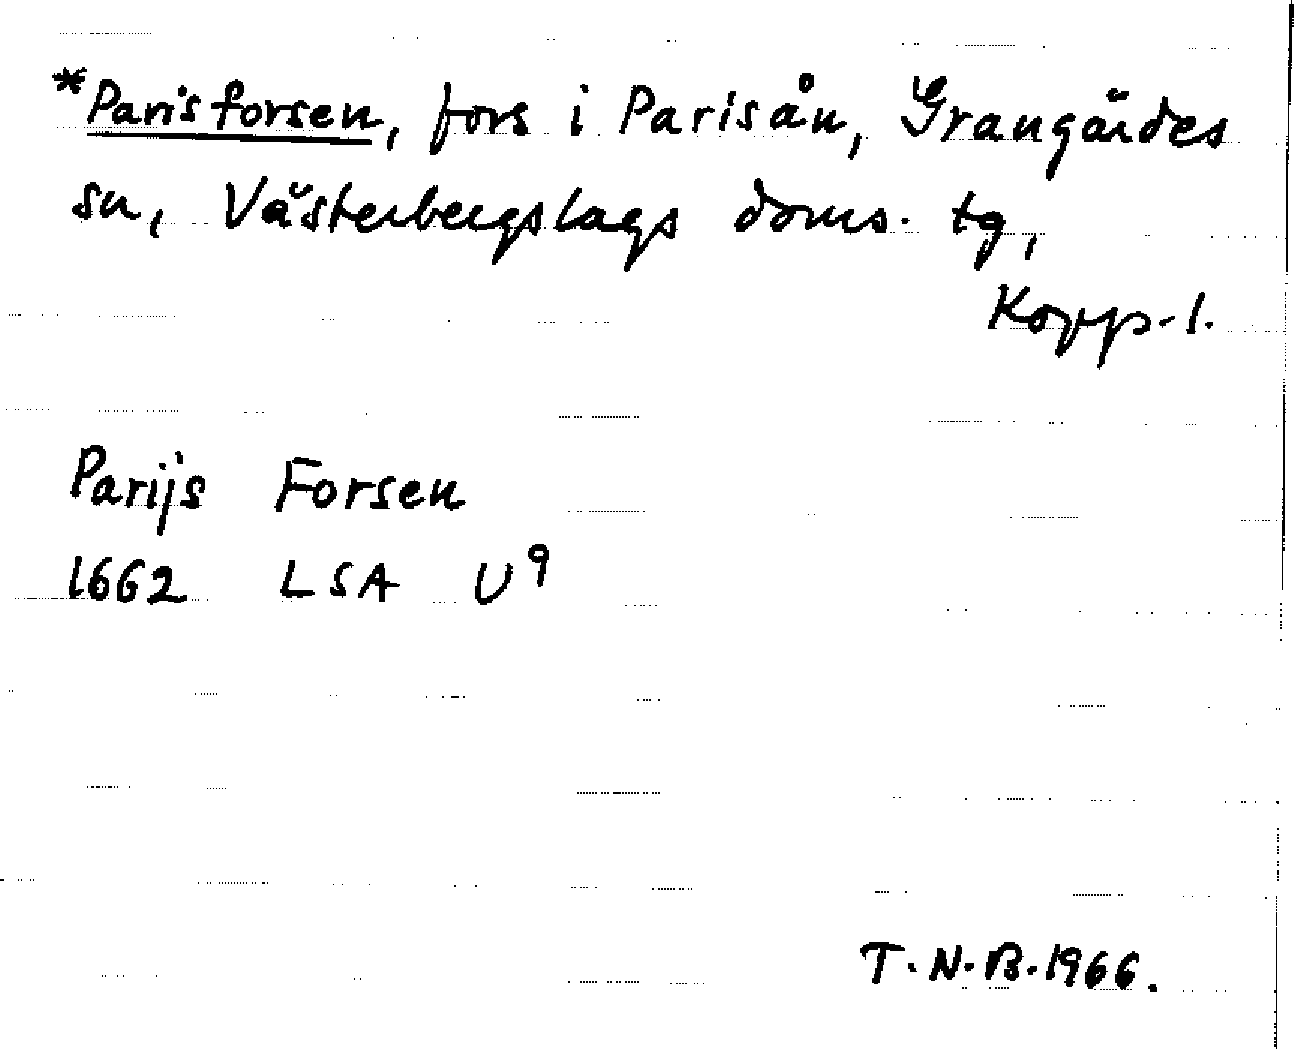 *Parisforsen, fors i Parisån, Grangärdes
sn, Västerbergslags doms. tg,
Kopp. l.
Parijs Forsen
1662 LSA U9
T.N.B. 1966.